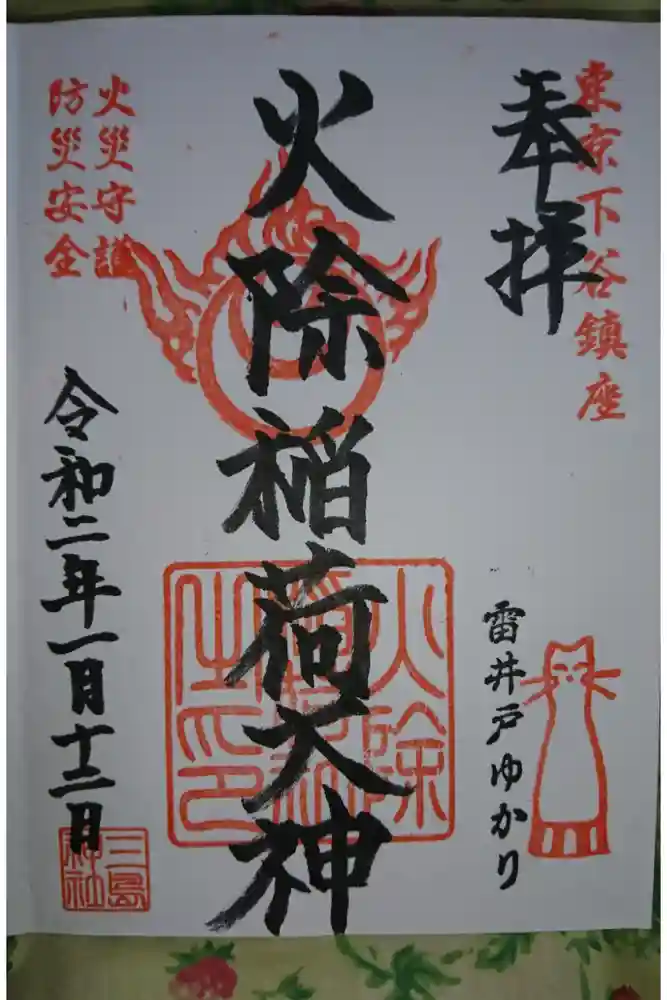 東京下谷鎮座
奉拝
雷井戸ゆかり
火除稲荷大神
火災守護
防災安全
令和二年一月十二日
三島神社